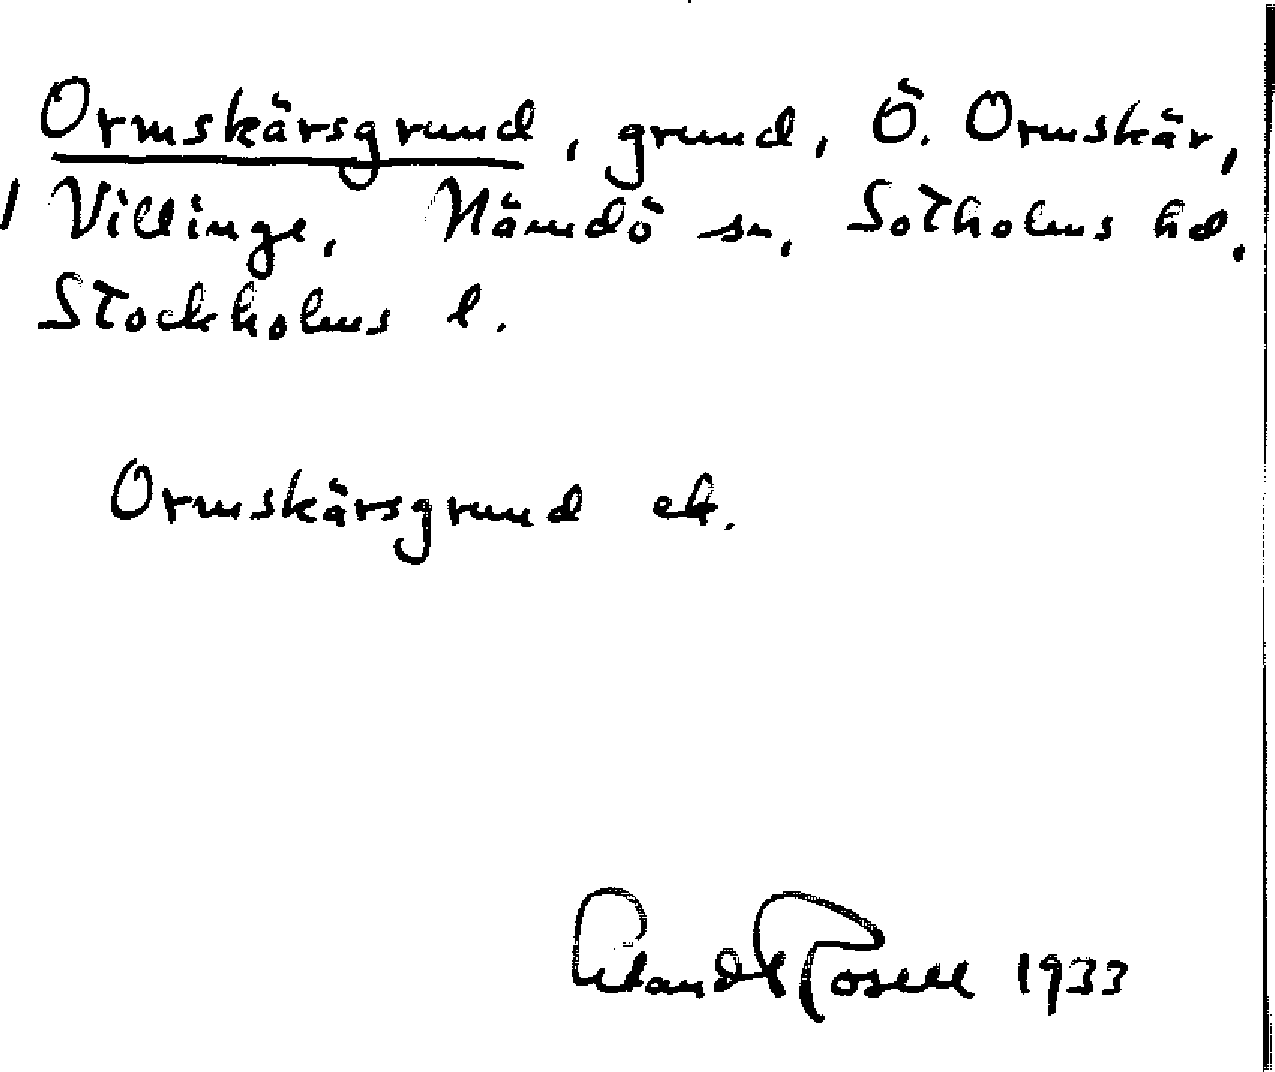 Ormskärsgrund, grund, Ö. Ormskär,
Villinge, Nämdö sn, Sotholms hd.
Stockholms l.
Ormskärsgrund ek.
Erland Rosell 1933